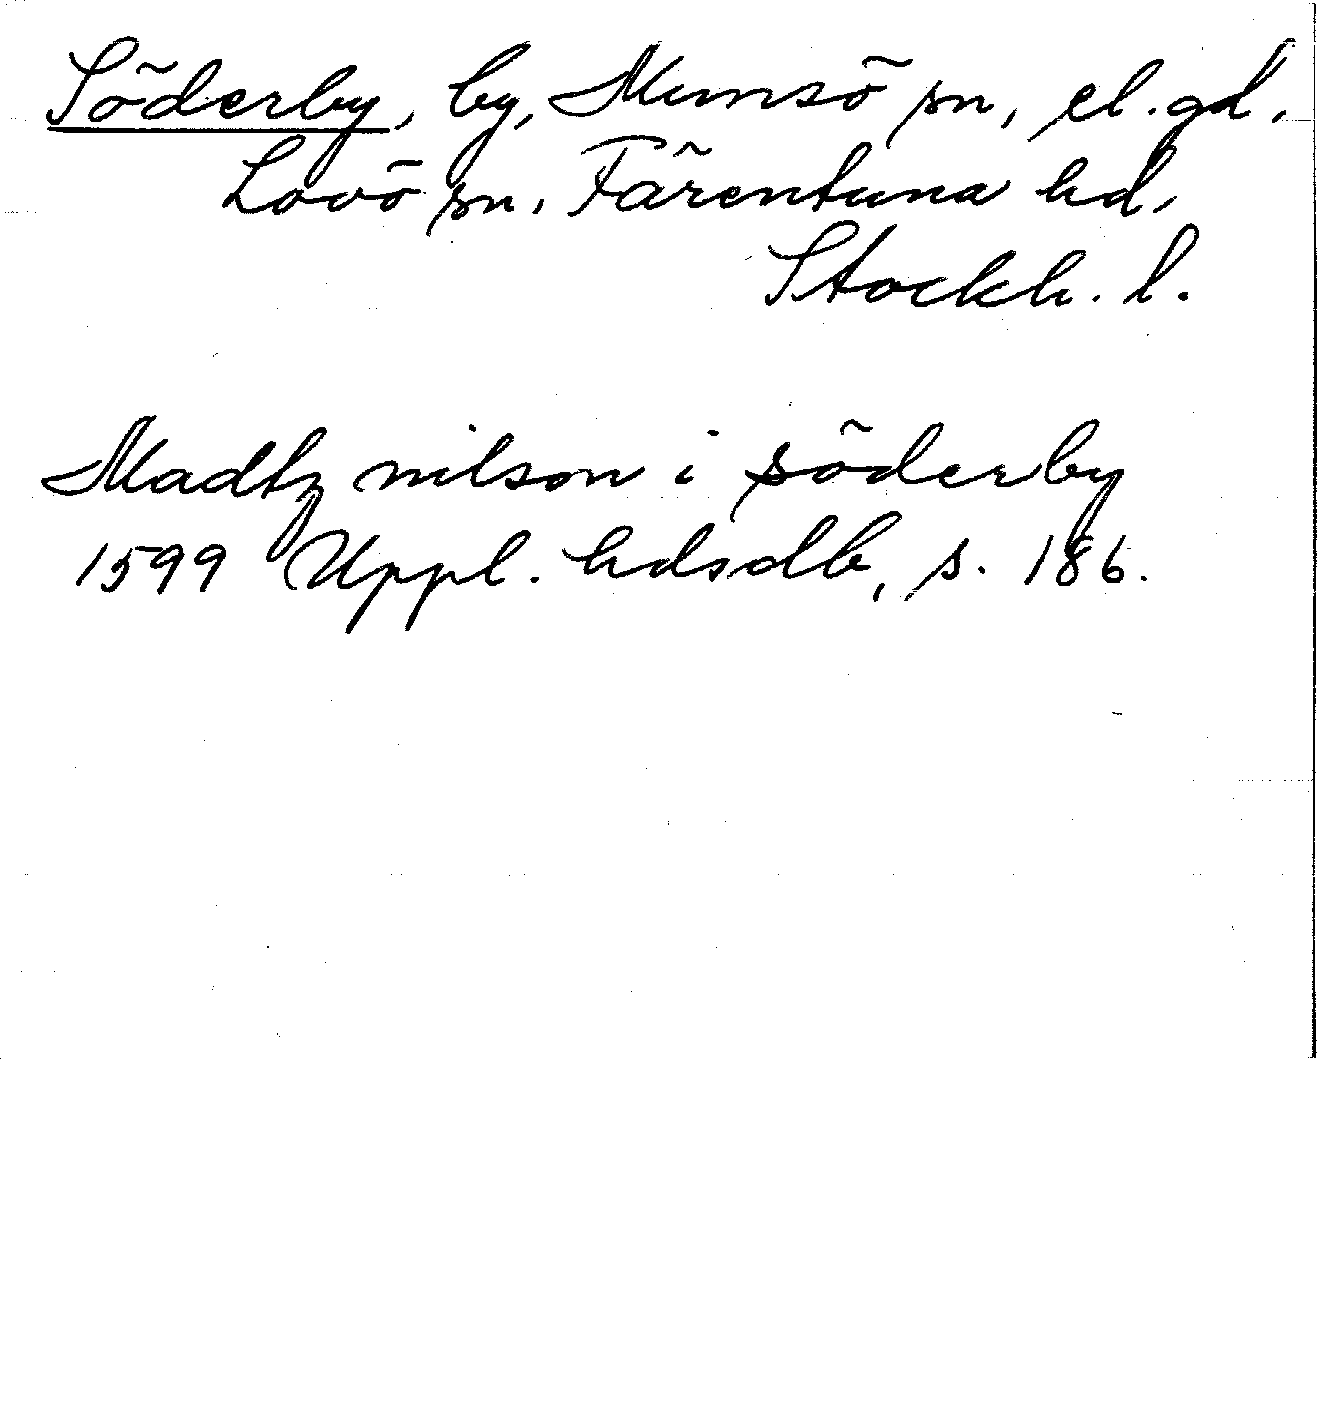 Söderby, by, Munsö sn, el. gd.
Lovö sn, Färentuna hd,
Stockh. l.
Madtz nilson i söderby
1599 Uppl. hdsdb, s. 186.